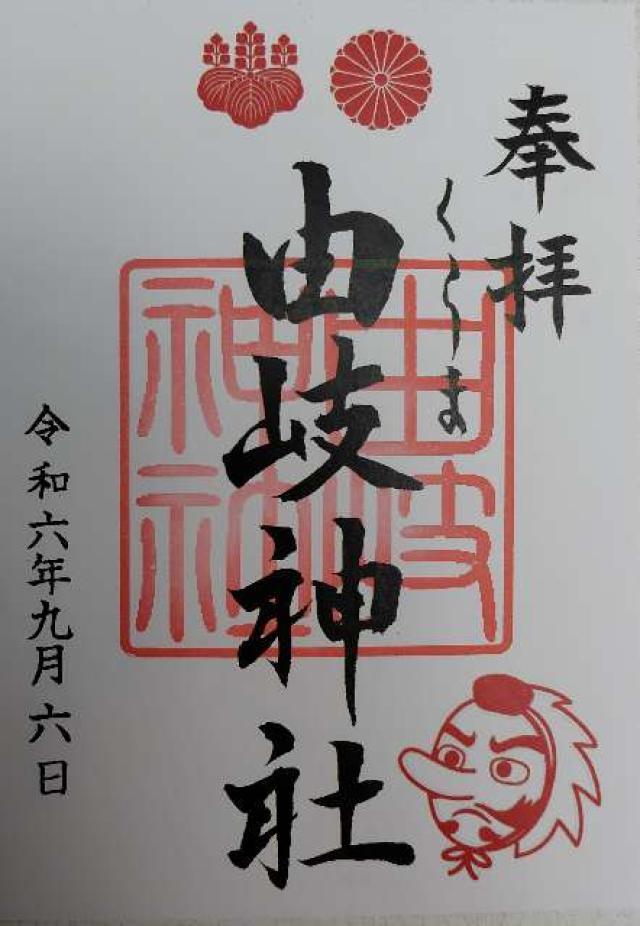 奉拝
くらま
由岐神社
由岐神社
令和六年九月六日